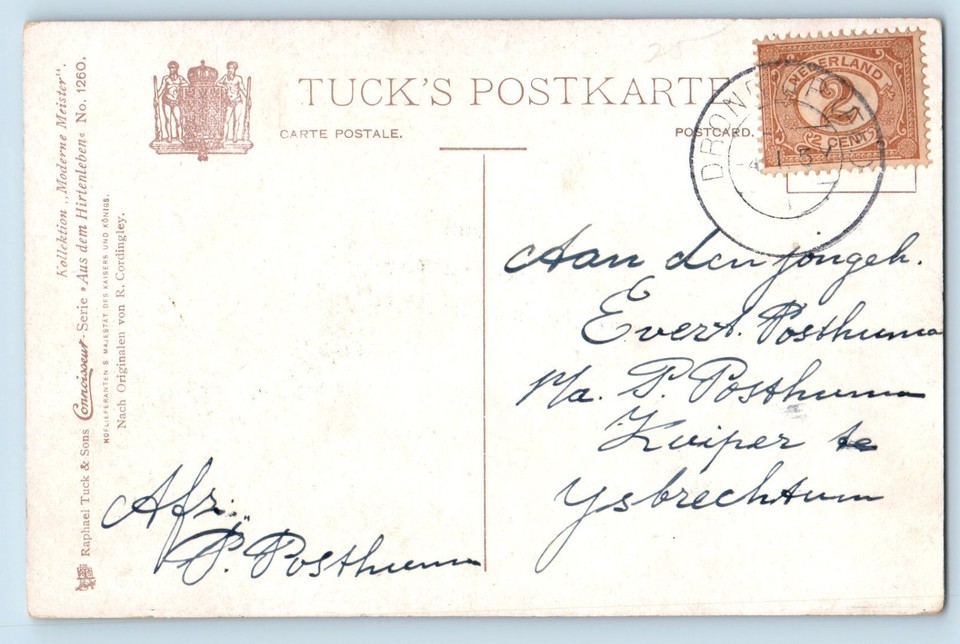 TUCK'S POSTKARTE
CARTE POSTALE.
POSTCARD.
NEDERLAND
2½
CENT
Kollektion „Moderne Meister".
Raphael Tuck & Sons Connoisseur-Serie »Aus dem Hirtenleben« No. 1260.
HOFLIEFERANTEN S MAJESTÄT DES KAISERS UND KÖNIGS.
Nach Originalen von R. Cordingley.
Aan den jongeh.
Evert Posthuma
p/a. P. Posthuma
Kuiper te
Ysbrechtum
Afz.
P. Posthuma